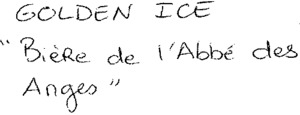 GOLDEN ICE
"Bière de l'Abbé des
Anges"